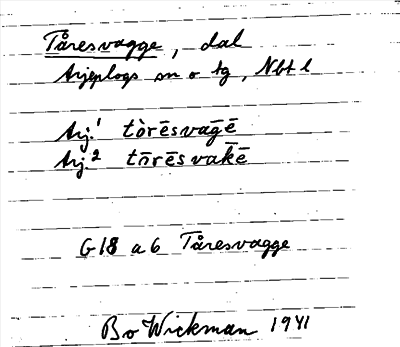 Tåresvagge, dal
Arjeplogs sn o tg, Nbt l
Arj.¹ tòrēsvaḡē
Arj.² tārēsvak̄ē
G18 a 6 Tåresvagge
Bo Wickman 1941